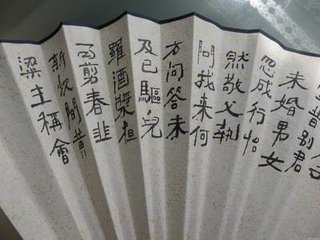 昔別君
未婚男女
忽成行怡
然敬父執
問我来何
方問答未
及已驅兒
羅酒漿夜
雨剪春韭
新炊間黄
梁主稱會